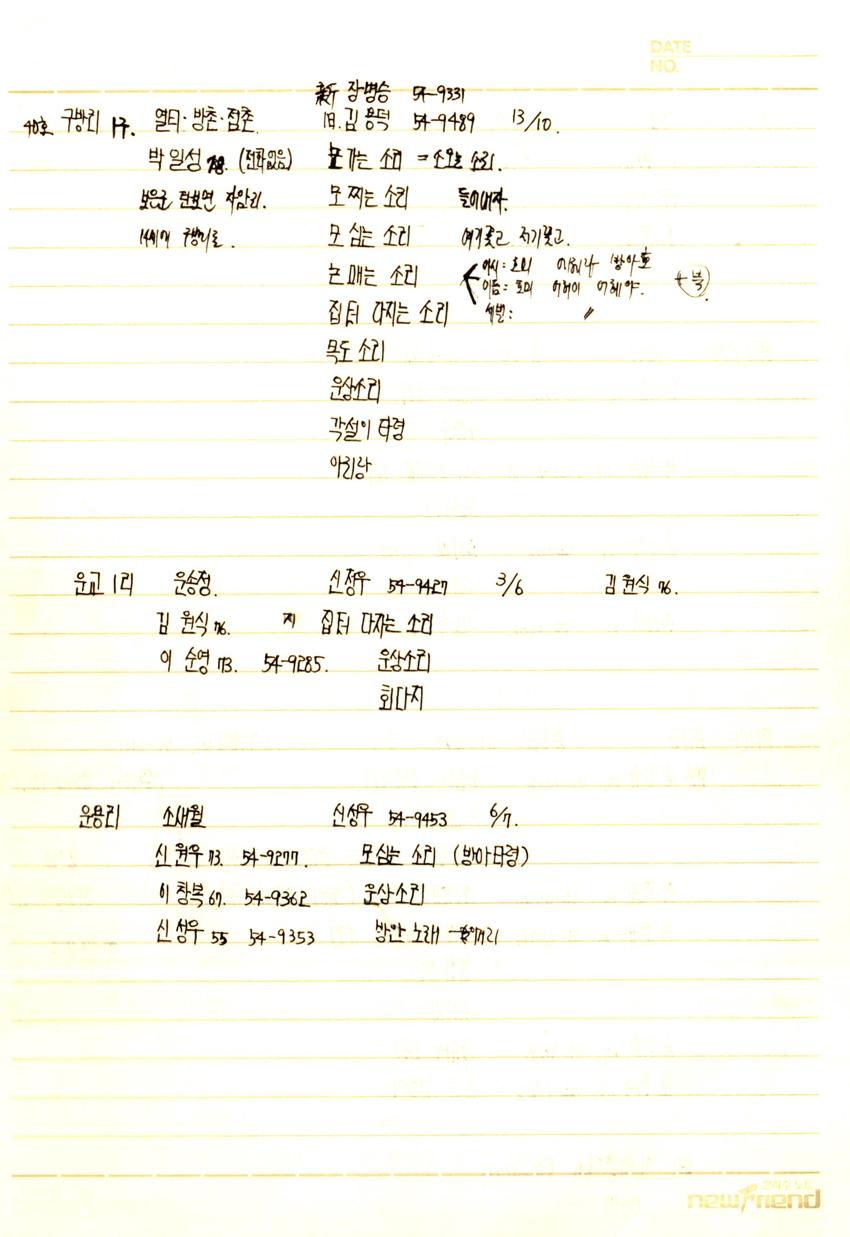 DATE
NO.
新 장병승 54-9331
40호 구방리 1구. 열터·방촌·접촌. 旧. 김용덕 54-9489 13/10.
박일성 78. (전화없음) 논가는 소리 = 소모는 소리.
보은군 탄부면 자암리. 모찌는 소리 들어내자.
14세에 구방리로. 모 심는 소리 여기꽂고 저기꽂고.
논매는 소리 아시: 호미 어허라 방아호
이듬: 호미 어허이 어헤야. +북.
집터 다지는 소리 세벌: 〃
목도 소리
운상소리
각설이 타령
아리랑
운교 1리 운송정. 신정우 54-9427 3/6 김원식 76.
김 원식 76. 집터 다지는 소리
이 순영 73. 54-9285. 운상소리
회다지
운용리 소새월 신성우 54-9453 6/7.
신원우 73. 54-9277. 모심는 소리 (방아타령)
이창복 67. 54-9362 운상소리
신성우 55 54-9353 방안 노래
newFriend